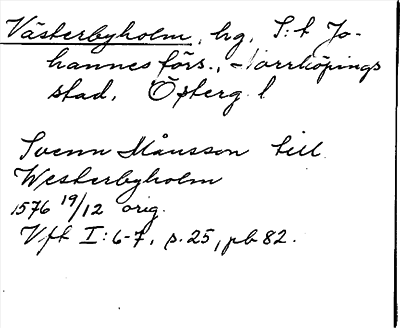 Västerbyholm, hg, S:t Jo-
hannes förs., Norrköpings
stad, Österg. l
Svenn Månsson till
Westerbyholm
1576 19/12 orig.
Vft I:6-7, s. 25, pb 82.